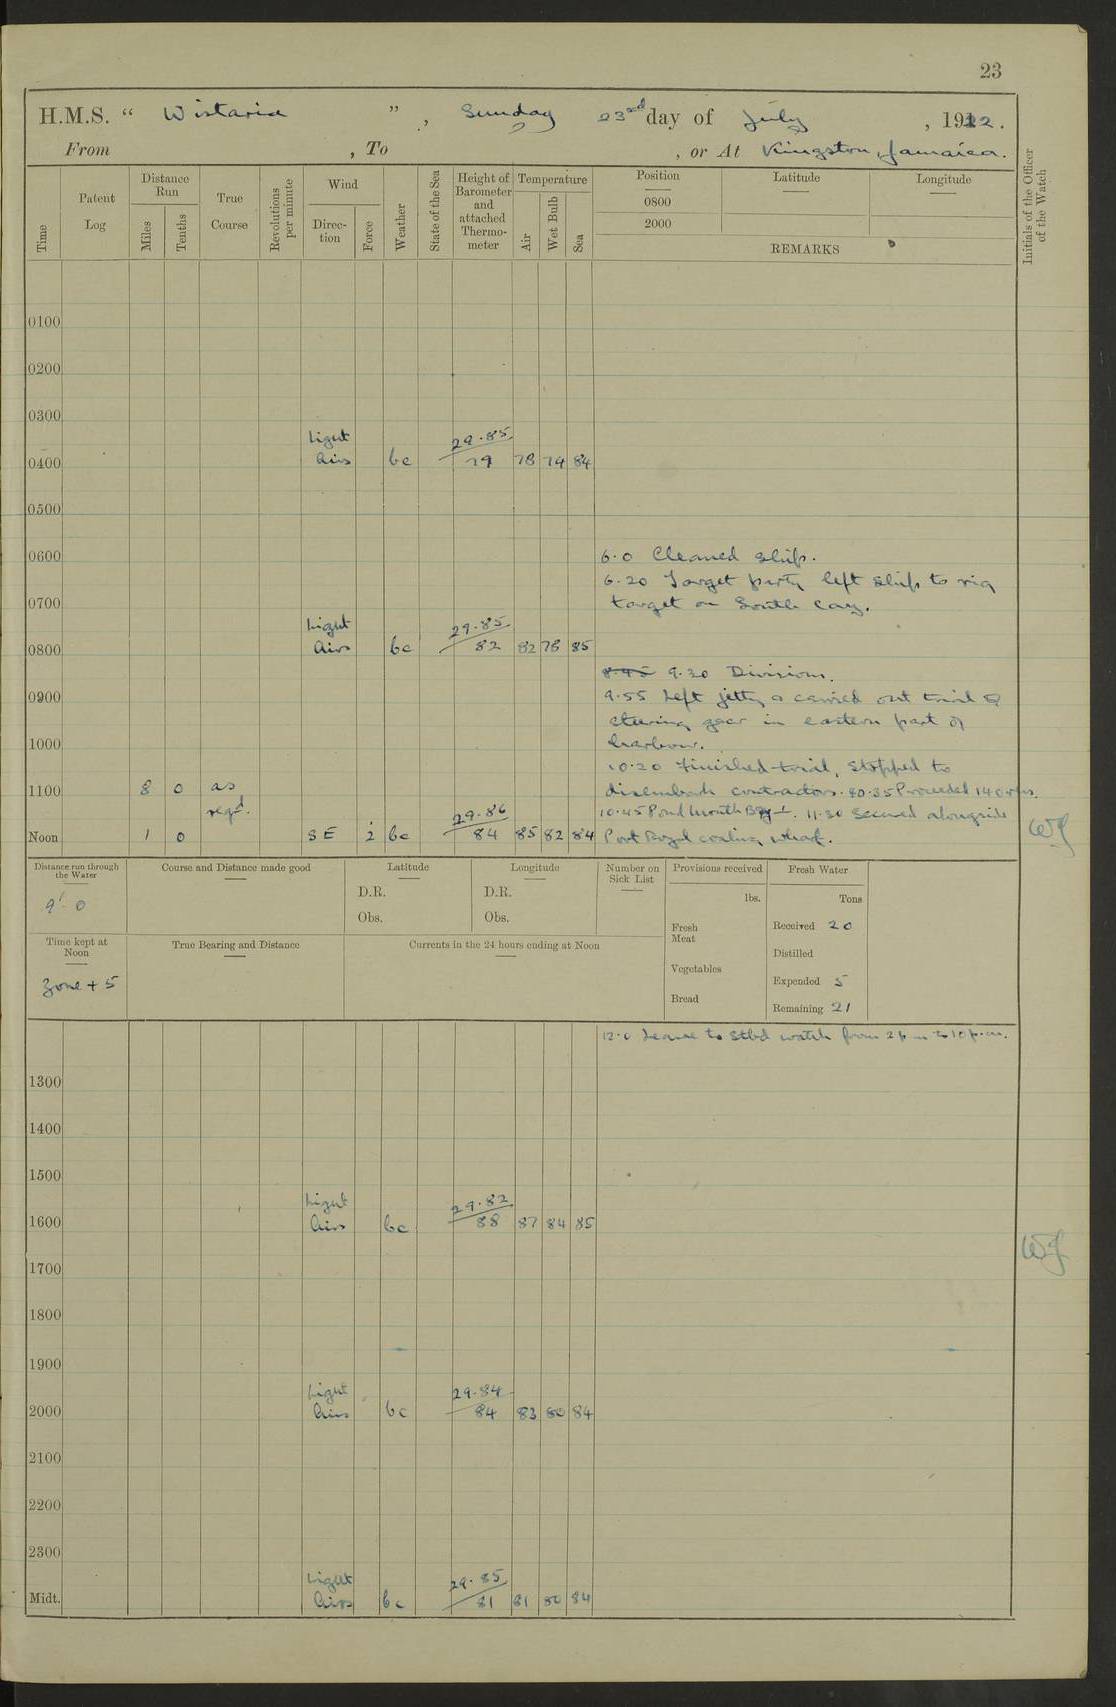 23
H.M.S. “ Wistaria ” , Sunday 23rd day of July , 1922.
From , To , or At Kingston, Jamaica.
Time
Patent Log
Distance Run
Miles
Tenths
True Course
Revolutions per minute
Wind
Direction
Force
Weather
State of the Sea
Height of Barometer and attached Thermometer
Temperature
Air
Wet Bulb
Sea
Position
0800
2000
Latitude
Longitude
REMARKS
Initials of the Officer of the Watch
0100
0200
0300
Light 29.85
0400 Airs bc 79 78 74 84
0500
0600 6.0 Cleaned ship.
6.20 Target party left ship to rig
0700 target on South Cay.
Light 29.85
0800 Airs bc 82 82 78 85
8.45 9.30 Divisions.
0900 9.55 Left jetty & carried out trial of
steering gear in eastern part of
1000 harbour.
10.20 Finished trial, stopped to
1100 8 0 as disembark contractors. 10.35 Proceeded 140 rvs.
reqd. 29.86 10.45 Pond Mouth Bgy. 11.30 Secured alongside
Noon 1 0 SE 2 bc 84 85 82 84 Port Royal coaling wharf.
WJ
Distance run through the Water
9'. 0
Course and Distance made good
Latitude
D.R.
Obs.
Longitude
D.R.
Obs.
Number on Sick List
Provisions received
lbs.
Fresh Meat
Vegetables
Bread
Fresh Water
Tons
Received 20
Distilled
Expended 5
Remaining 21
Time kept at Noon
Zone + 5
True Bearing and Distance
Currents in the 24 hours ending at Noon
12.0 Leave to Stbd watch from 2 p.m to 10 p.m.
1300
1400
1500
Light 29.82
1600 Airs bc 88 87 84 85
WJ
1700
1800
1900
Light 29.84
2000 Airs bc 84 83 80 84
2100
2200
2300
Light 29.85
Midt. Airs bc 81 81 80 84